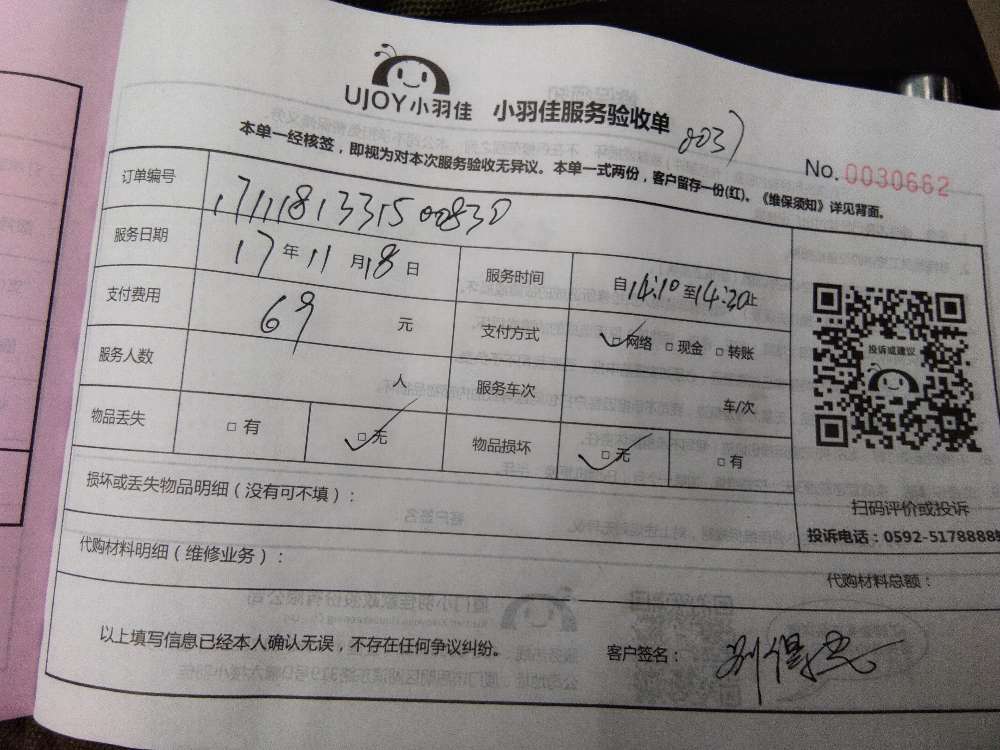 UJOY小羽佳 小羽佳服务验收单 0037
本单一经核签，即视为对本次服务验收无异议。本单一式两份，客户留存一份(红)。《维保须知》详见背面。
No.0030662
订单编号 1711181331500830
服务日期 17年11月18日 服务时间 自14:10至14:20止
支付费用 69元 支付方式 □网络 □现金 □转账
服务人数 人 服务车次 车/次
物品丢失 □有 □无 物品损坏 □无 □有
投诉或建议
扫码评价或投诉
投诉电话：0592-5178888
损坏或丢失物品明细（没有可不填）：
代购材料明细（维修业务）：
代购材料总额：
以上填写信息已经本人确认无误，不存在任何争议纠纷。
客户签名：